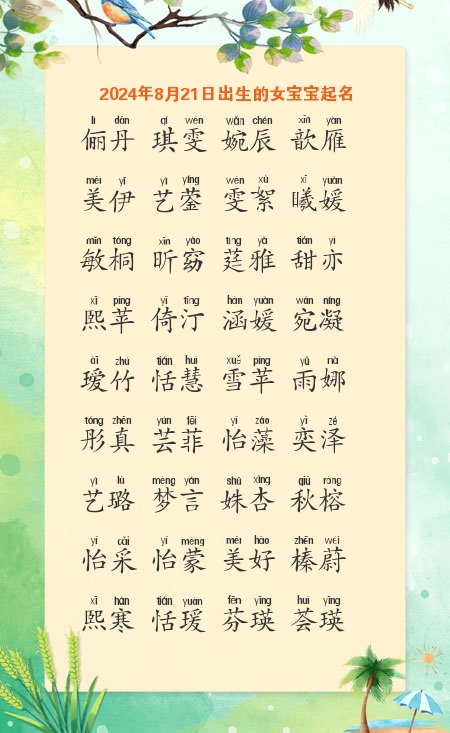 2024年8月21日出生的女宝宝起名
lì dān qí wén wǎn chén xīn yàn
俪丹 琪雯 婉辰 歆雁
měi yī yì yíng wén xù xī yuàn
美伊 艺蓥 雯絮 曦媛
mǐn tóng xīn yǎo tíng yǎ tián yì
敏桐 昕窈 莛雅 甜亦
xī píng yǐ tīng hán yuàn wǎn níng
熙苹 倚汀 涵媛 宛凝
ài zhú tián huì xuě píng yǔ nà
瑷竹 恬慧 雪苹 雨娜
tóng zhēn yún fēi yí zǎo yì zé
彤真 芸菲 怡藻 奕泽
yì lù mèng yán shū xìng qiū róng
艺璐 梦言 姝杏 秋榕
yí cǎi yí méng měi hǎo zhēn wèi
怡采 怡蒙 美好 榛蔚
xī hán tián yuàn fēn yīng huì yīng
熙寒 恬瑗 芬瑛 荟瑛